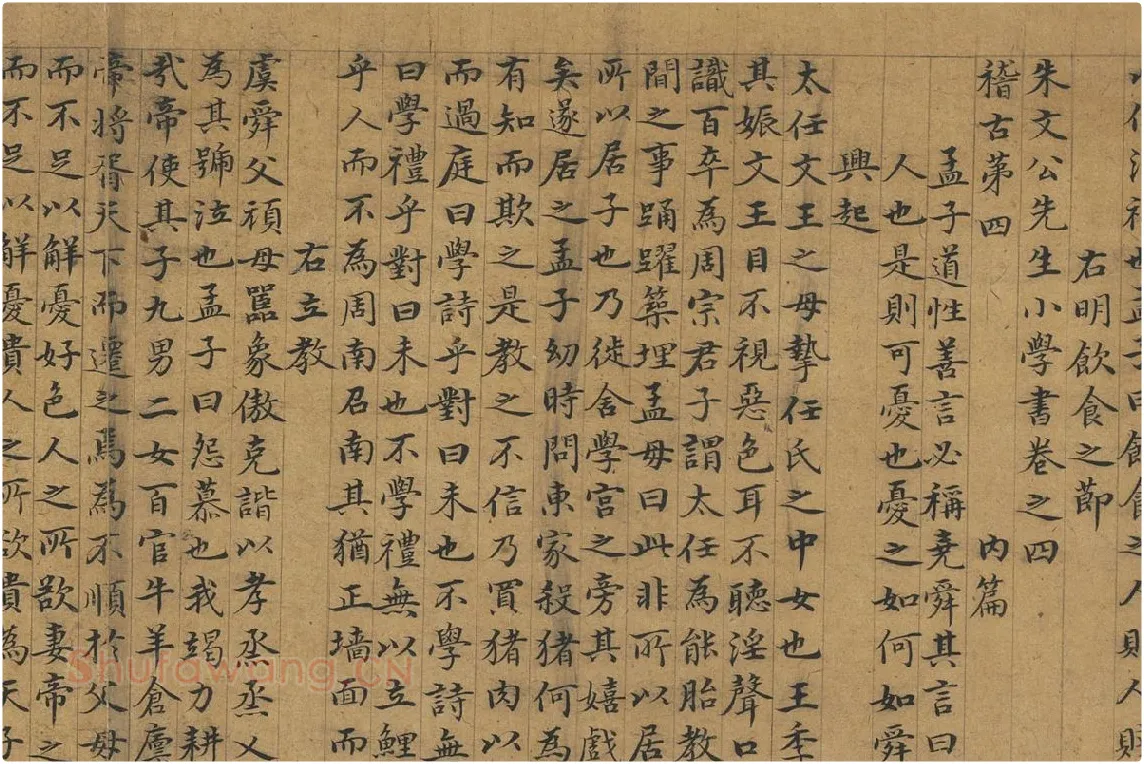 飲食之人則人賤
右明飲食之節
朱文公先生小學書卷之四
稽古第四 內篇
孟子道性善言必稱堯舜其言曰
人也是則可憂也憂之如何如舜
興起
太任文王之母摯任氏之中女也王季
其娠文王目不視惡色耳不聽淫聲口
識百卒為周宗君子謂太任為能胎教
間之事踊躍築埋孟母曰此非所以居
所以居子也乃徙舍學宮之旁其嬉戲
矣遂居之孟子幼時問東家殺猪何為
有知而欺之是教之不信乃買猪肉以
而過庭曰學詩乎對曰未也不學詩無
曰學禮乎對曰未也不學禮無以立鯉
乎人而不為周南召南其猶正墻面而
右立教
虞舜父頑母嚚象傲克諧以孝烝烝乂
為其號泣也孟子曰怨慕也我竭力耕
我帝使其子九男二女百官牛羊倉廩
帝將胥天下而遷之焉為不順於父母
而不足以解憂好色人之所欲妻帝之
而不足以解憂貴人之所欲貴為天子
Shufawang.CN